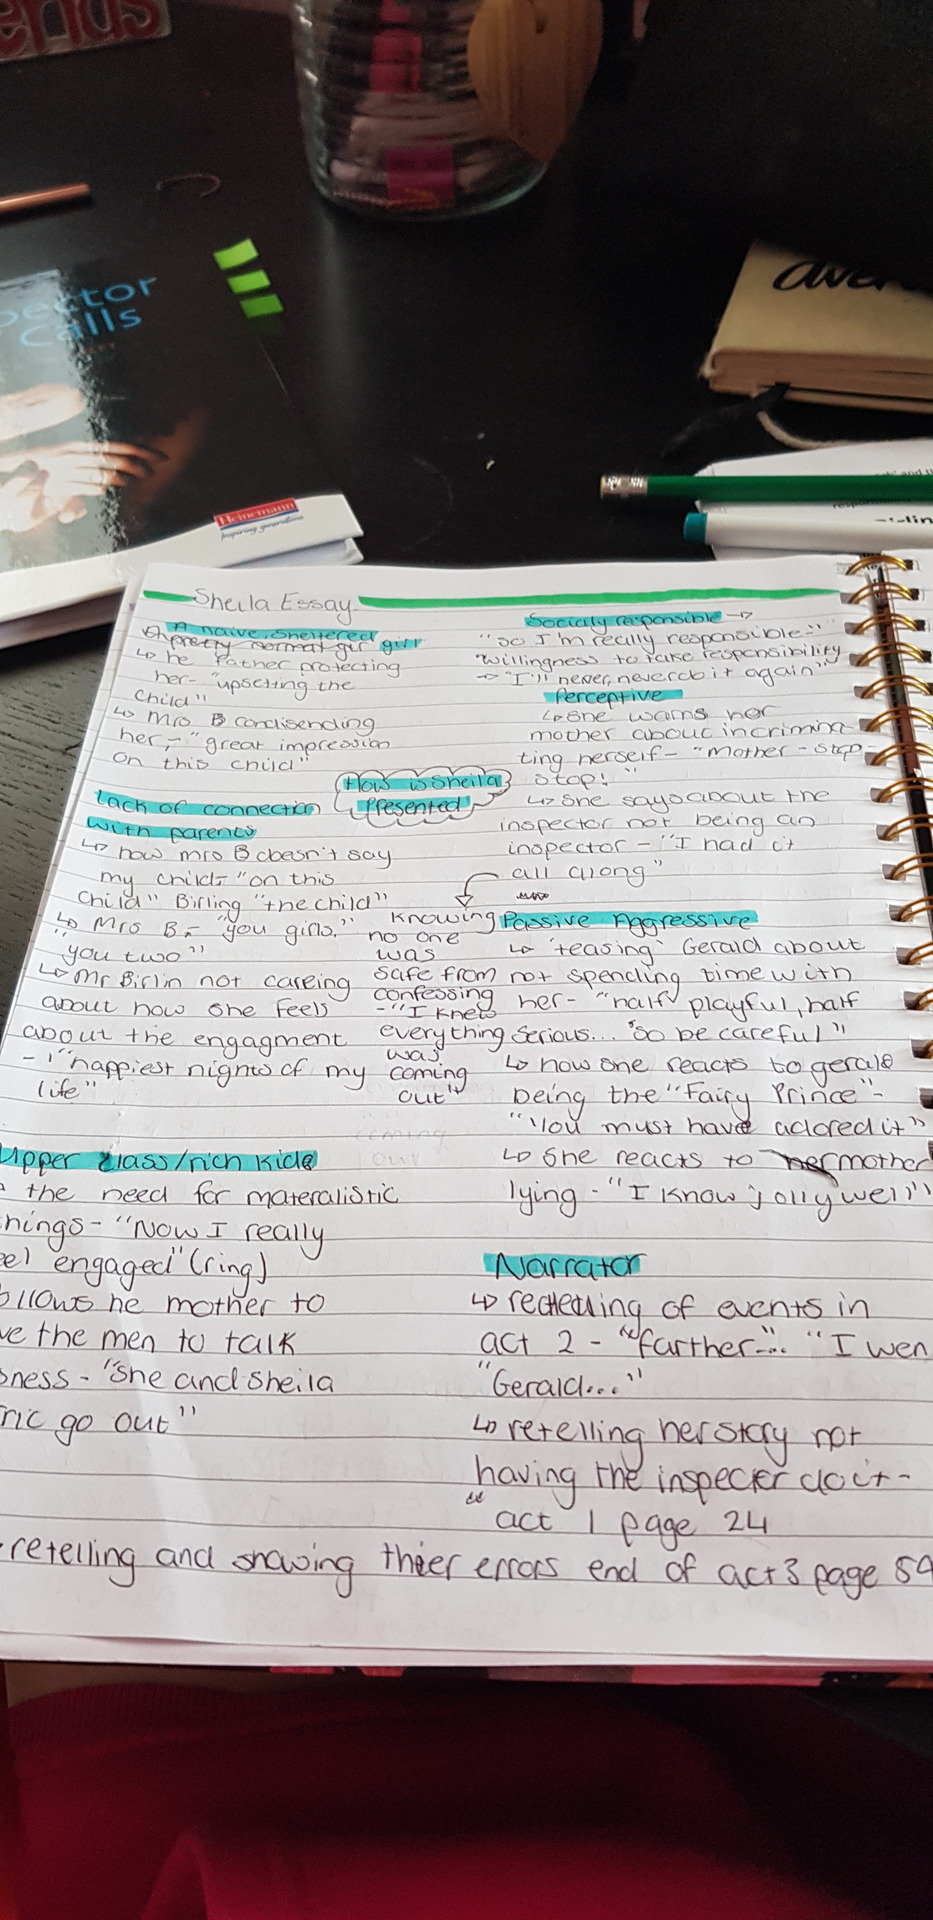 ends
ector
Calls
Heinemann
Inspiring generations
Sheila Essay
A naive, sheltered girl
pretty normal gir
↳ he Father protecting
her- "upsetting the
child"
↳ Mrs B condisending
her,- "great impression
on this child"
Lack of connection
with parents
↳ how mrs B doesn't say
my child- "on this
child" Birling "the child"
↳ Mrs B - "you girls,"
"you two"
↳ Mr Birlin not careing
about how she feels
about the engagment
- "happiest nights of my
life"
Upper class/rich kide
the need for materalistic
hings- "Now I really
eel engaged" (ring)
ollows he mother to
ve the men to talk
sness - "she and sheila
ric go out"
How is Sheila
Presented
Socialy responsible →
"so I'm really responsible-"
willingness to take responsibility
→ "I'll never, never do it again"
Perceptive
↳ she warns her
mother about incrimina-
ting herself- "Mother - stop -
stop!"
↳ she says about the
inspector not being an
inspector - "I had it
all along"
Knowing
no one
was
safe from
confessing
- "I knew
everything
was
coming
out"
coming
out
Passive Aggressive
↳ 'teasing' Gerald about
not spending time with
her- "half playful, half
serious... 'so be careful"
↳ how one reacts to gerald
being the "Fairy Prince" -
"You must have adored it"
↳ she reacts to her mother
lying - "I know jolly well"
Narrator
↳ retelling of events in
act 2 - "farther..." "I wen
"Gerald..."
↳ retelling her story not
having the inspecter do it-
" act 1 page 24
retelling and showing thier errors end of act 3 page 59